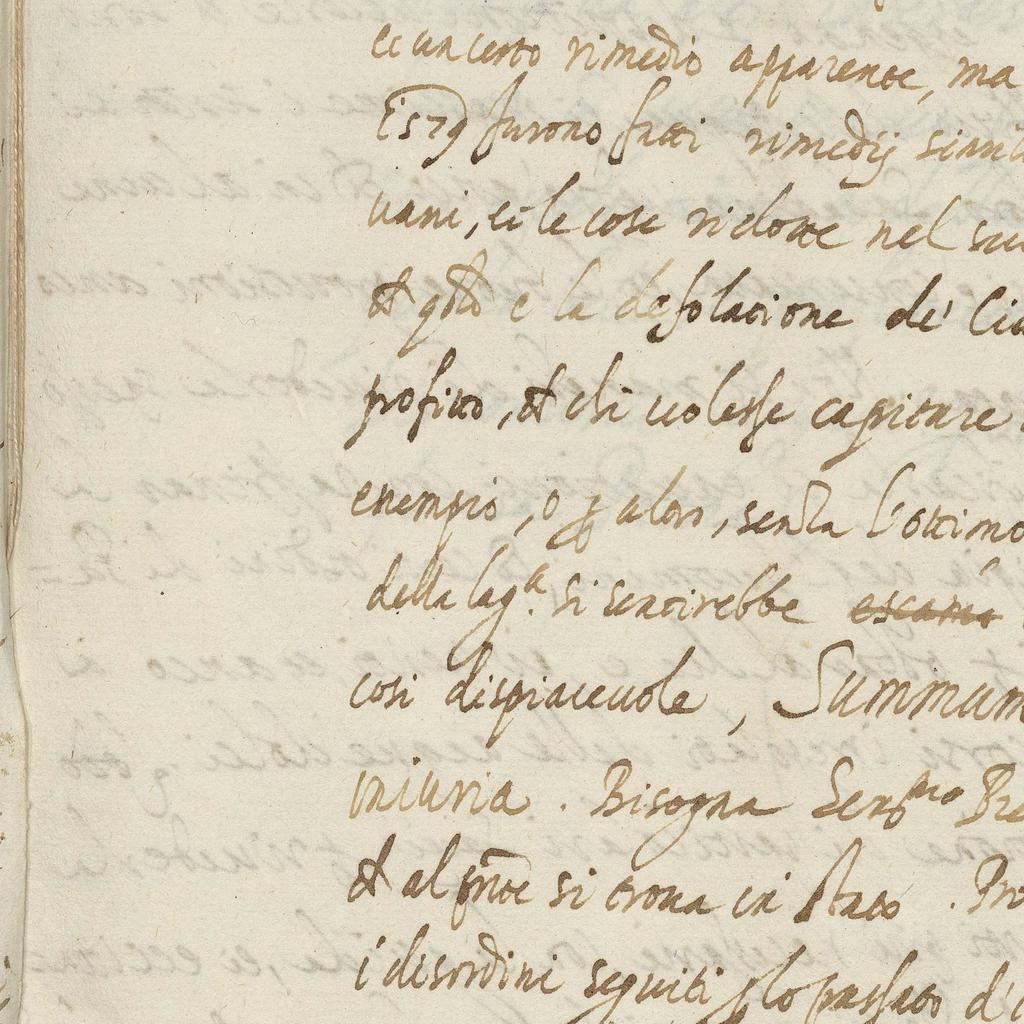 et un certo rimedio apparente, ma
1579 furono fatti rimedij
uani, et le cose ridotte nel
et q̃sto è la desolatione de' Cit
profitto, et chi uolesse capitare
enempio, o p altro, senza l'ottimo
della lag.ª si sentirebbe
cosi dispiaceuole, Summum
iniuria. Bisogna Ser.mo Pre
et al p̃nte si troua in stato. Pro
i disordini seguiti p lo passato d'